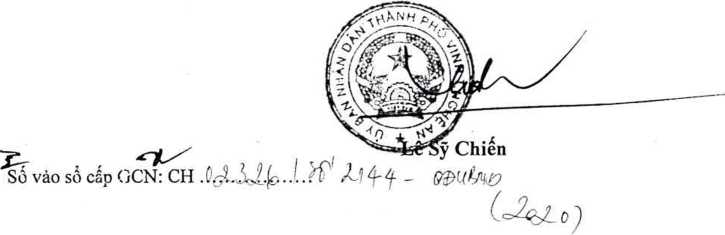 ỦY BAN NHÂN DÂN THÀNH PHỐ VINH NGHỆ AN
Lê Sỹ Chiến
Số vào sổ cấp GCN: CH 02326 / số 2144 - QĐUBND
(2020)